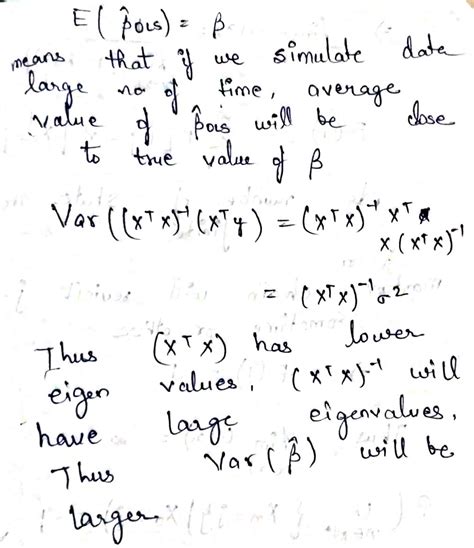 E( β̂OLS) = β
means that if we simulate data
large no of time, average
value of β̂OLS will be close
to true value of β
Var((XᵀX)⁻¹(Xᵀy) = (XᵀX)⁻¹ Xᵀ
X(XᵀX)⁻¹
= (XᵀX)⁻¹σ²
Thus (XᵀX) has lower
eigen values, (XᵀX)⁻¹ will
have large eigenvalues,
Thus Var(β̂) will be
larger.